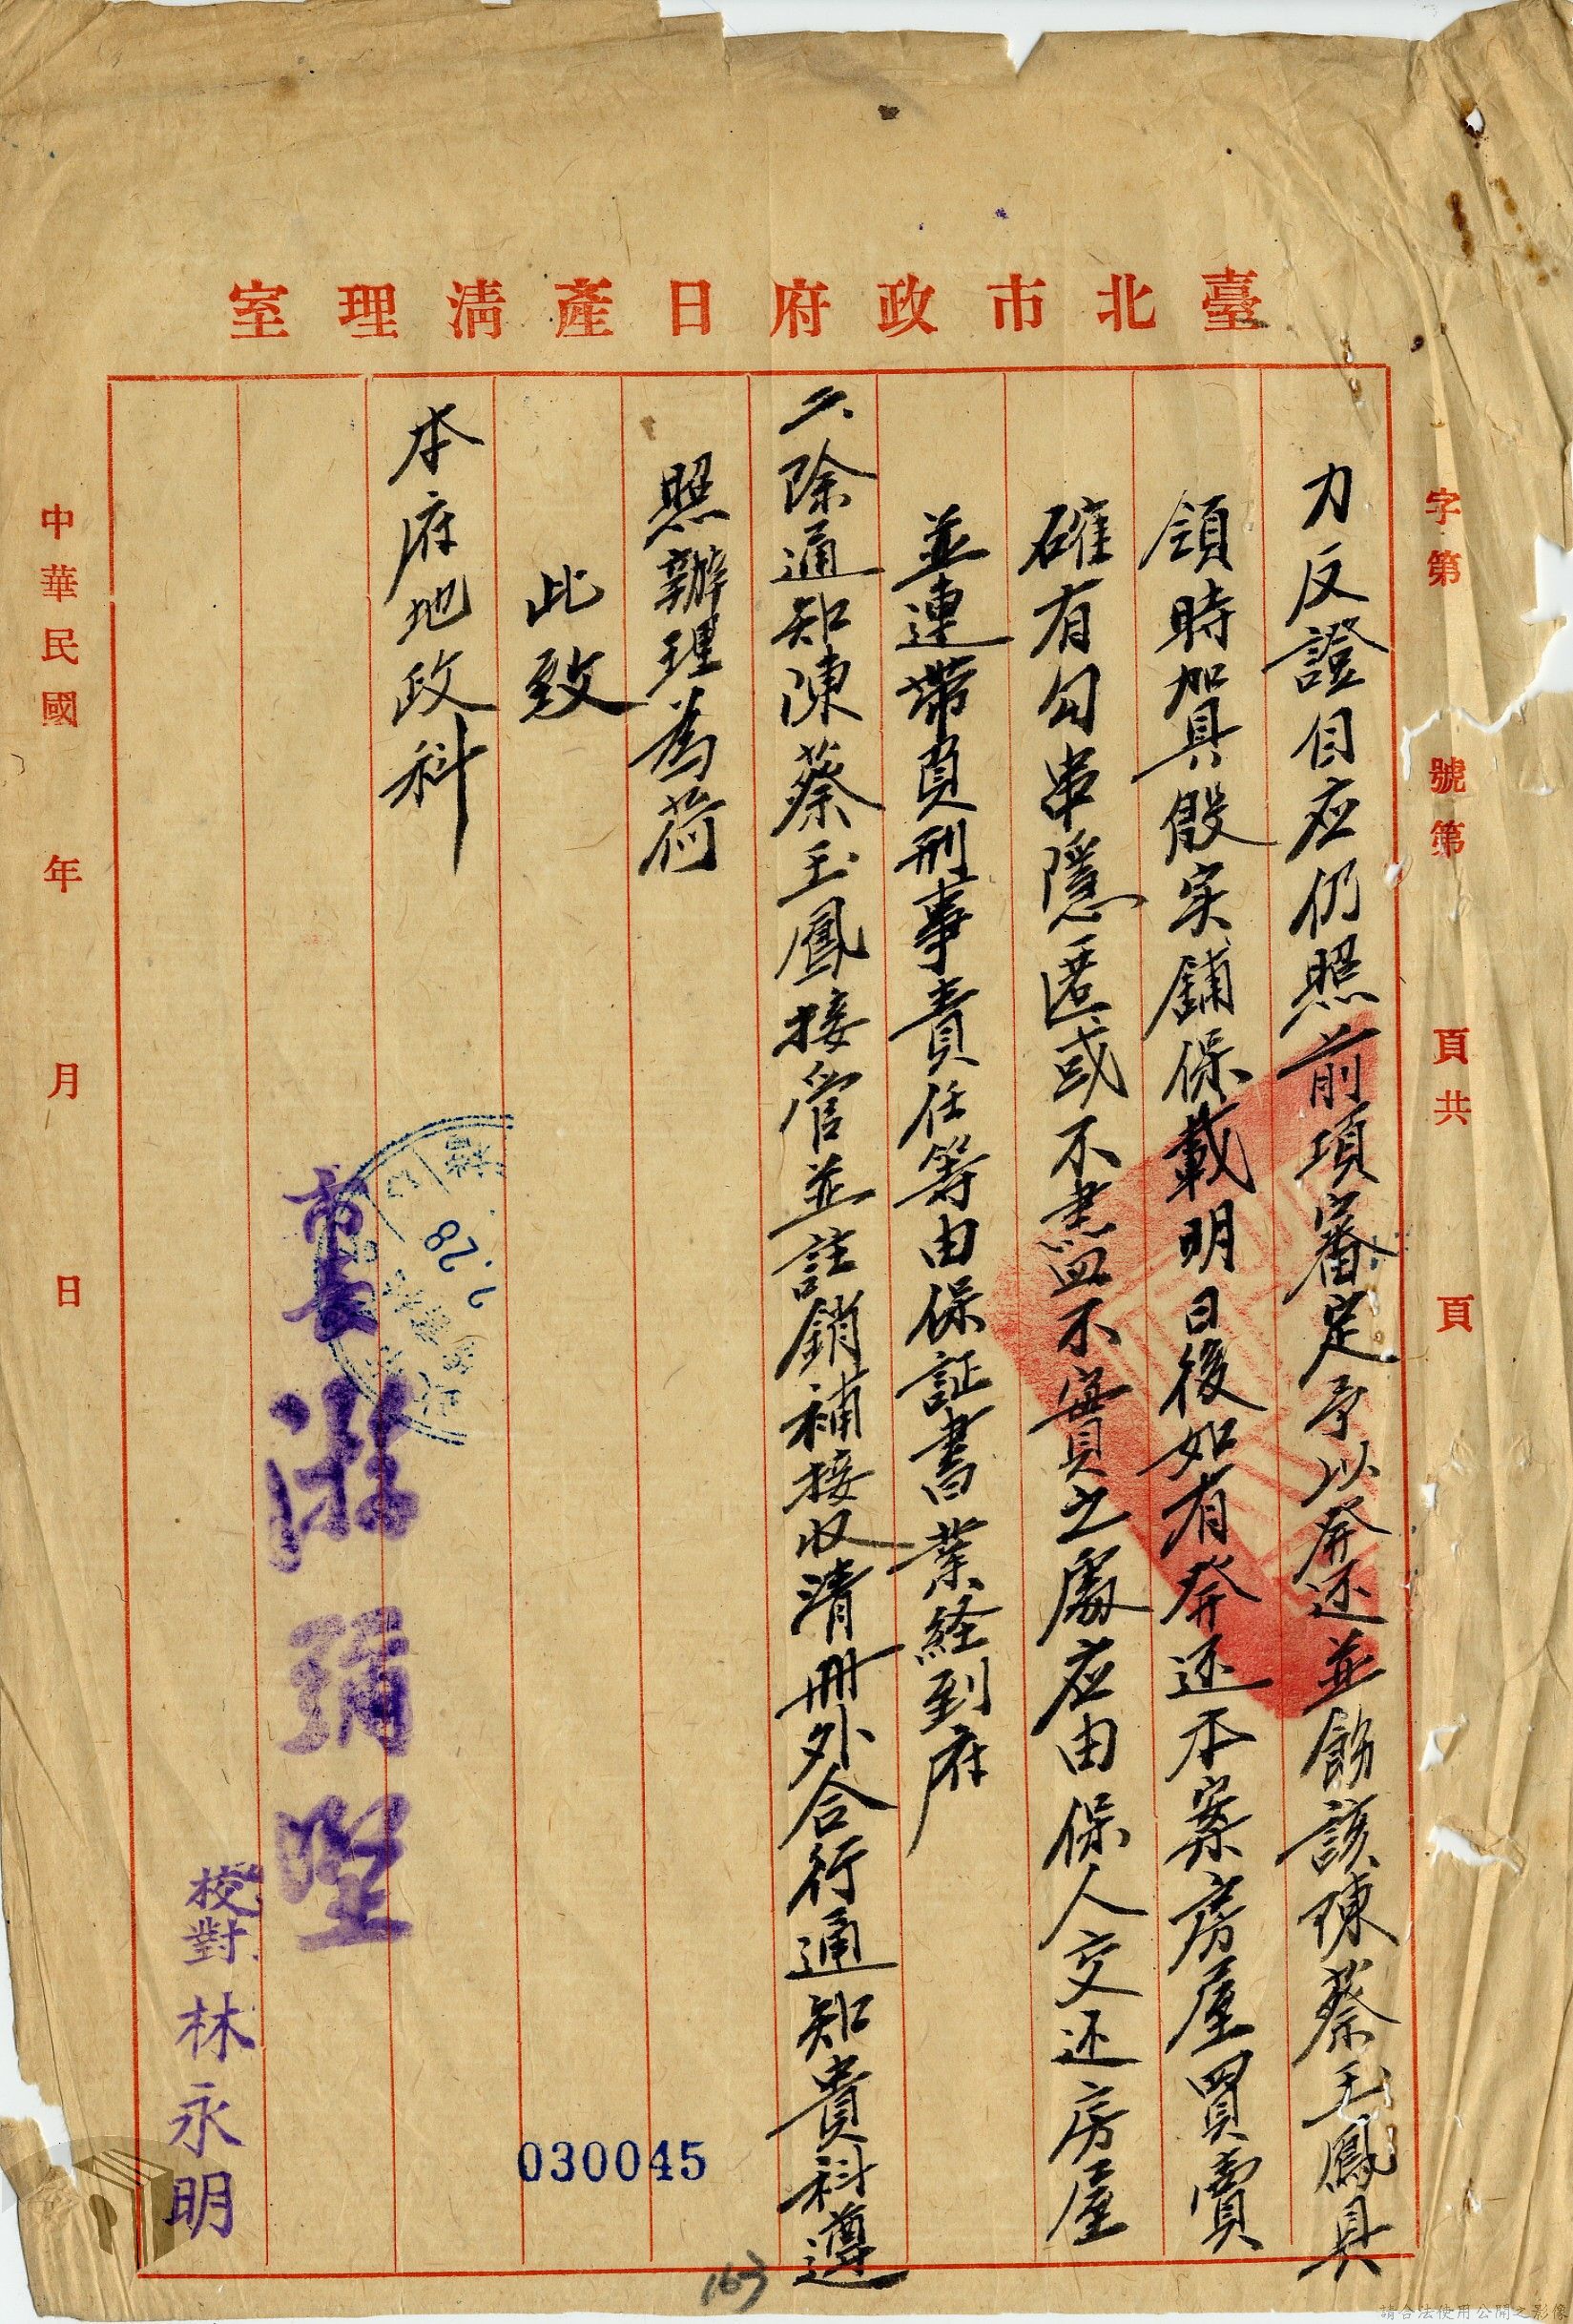 臺北市政府日產清理室
字第　號第　頁共　頁
力反證自应仍照前項審定予以發还並飭該陳蔡玉鳳具
領時加具殷实鋪保載明日後如有發还本案房屋買賣
確有勾串隱匿或不盡不實之處应由保人交还房屋
並連帶負刑事責任等由保証書業経到府
二、除通知陳蔡玉鳳接管並註銷補接收清册外合行通知貴科遵
照辦理為荷
此致
本府地政科
市長游彌堅
校對林永明
中華民國　年　月　日
2.28
030045
163
請合法使用公開之影像